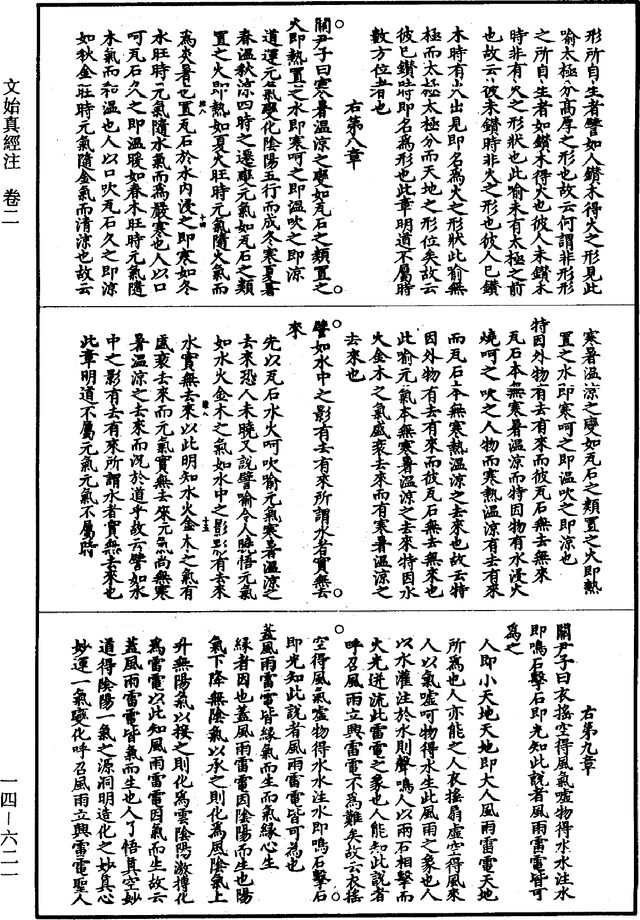 形所自生者譬如人鑽木得火之形見此
喻太極分高厚之形也故云何謂非形形
之所自生者如鑽木得火也彼人未鑽木
時非有火之形狀也此喻未有太極之前
也故云彼未鑽時非火之形也彼人已鑽
木時有火出見即名爲火之形狀此喻無
極而太極太極分而天地之形位矣故云
彼已鑽時即名爲形也此章明道不屬時
數方位者也
右第八章
關尹子曰寒暑溫涼之變如瓦石之類置之
火即熱置之水即寒呵之即溫吹之即涼
道運元氣變化陰陽五行而成冬寒夏暑
春溫秋涼四時之遷變元氣如瓦石之類
置之火即熱如夏火旺時元氣隨火氣而
爲炎暑也置瓦石於水內浸之即寒如冬
水旺時元氣隨水氣而爲嚴寒也人以口
呵瓦石久之即溫暖如春木旺時元氣隨
木氣而和溫也人以口吹瓦石久之即涼
如秋金旺時元氣隨金氣而清涼也故云
寒暑溫涼之變如瓦石之類置之火即熱
置之水即寒呵之即溫吹之即涼也
特因外物有去有來而彼瓦石無去無來
瓦石本無寒暑溫涼而特因物有水浸火
燒呵之吹之人物而寒熱溫涼有去有來
而瓦石本無寒熱溫涼之去來也故云特
因外物有去有來而彼瓦石無去無來也
此喻元氣本無寒暑溫涼之去來特因水
火金木之氣盛衰去來而有寒暑溫涼之
去來也
譬如水中之影有去有來所謂水者實無去
來
先以瓦石水火呵吹喻元氣寒暑溫涼之
去來恐人未曉又說譬喻令人曉悟元氣
如水火金木之氣如水中之影影有去來
水實無去來以此明知水火金木之氣有
盛衰去來而元氣實無去來元氣尚無寒
暑溫涼之去來而況於道乎故云譬如水
中之影有去有來所謂水者實無去來也
此章明道不屬元氣元氣不屬時
右第九章
關尹子曰衣搖空得風氣噓物得水水注水
即鳴石擊石即光知此說者風雨雷電皆可
爲之
人即小天地天地即大人風雨雷電天地
所爲也人亦能之人衣搖扇虛空得風來
人以氣噓呵物得水生此風雨之象也人
以水灌注於水則聲鳴人以兩石相擊而
火光迸流此雷電之象也人能知此說者
呼召風雨立興雷電不爲難矣故云衣搖
空得風氣噓物得水水注水即鳴石擊石
即光知此說者風雨雷電皆可爲也
蓋風雨雷電皆緣氣而生而氣緣心生
緣者因也蓋風雨雷電因陰陽而生也陽
氣下降無陰氣以承之則化爲風陰氣上
升無陽氣以接之則化爲雲陰陽激搏化
爲雷電以此知風雨雷電因氣而生故云
蓋風雨雷電皆氣而生也人了悟真空妙
道得陰陽一氣之源洞明造化之妙真心
妙運一氣變化呼召風雨立興雷電聖人
文始真經注 卷二
一四-六二一